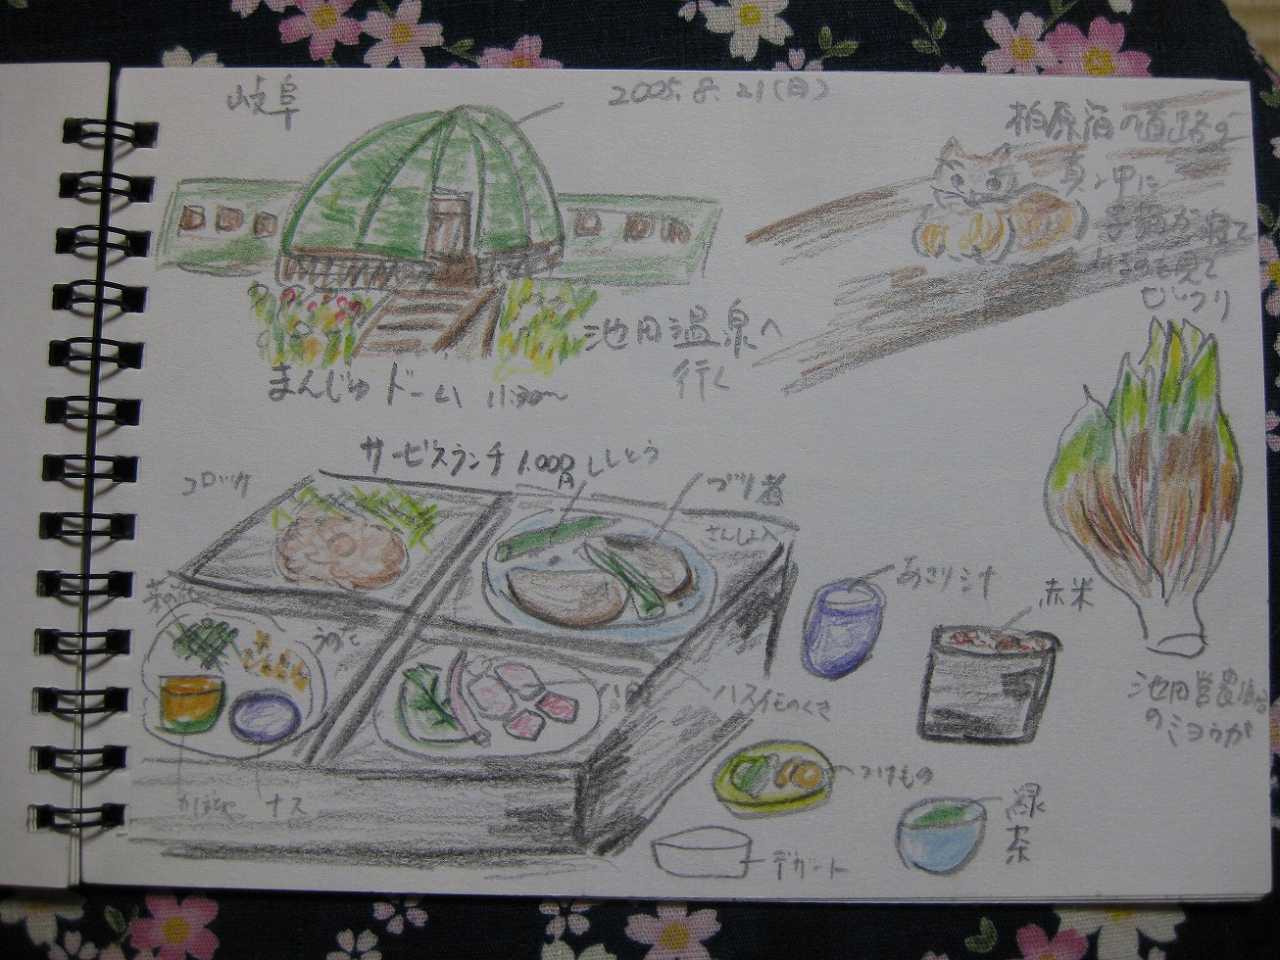 岐阜
2005.8.21(日)
柏原宿の道路の
真ン中に
子猫が寝て
いるのを見て
びっくり
池田温泉へ
行く
まんじゅドーム 11:30～
サービスランチ 1.000円
ししとう
ブリ煮
さんしょ入
コロッケ
うの花
かぼちゃ
ナス
ハス芋のくき
あさり汁
赤米
つけもの
緑
茶
デザート
池田営農
のミョウガ